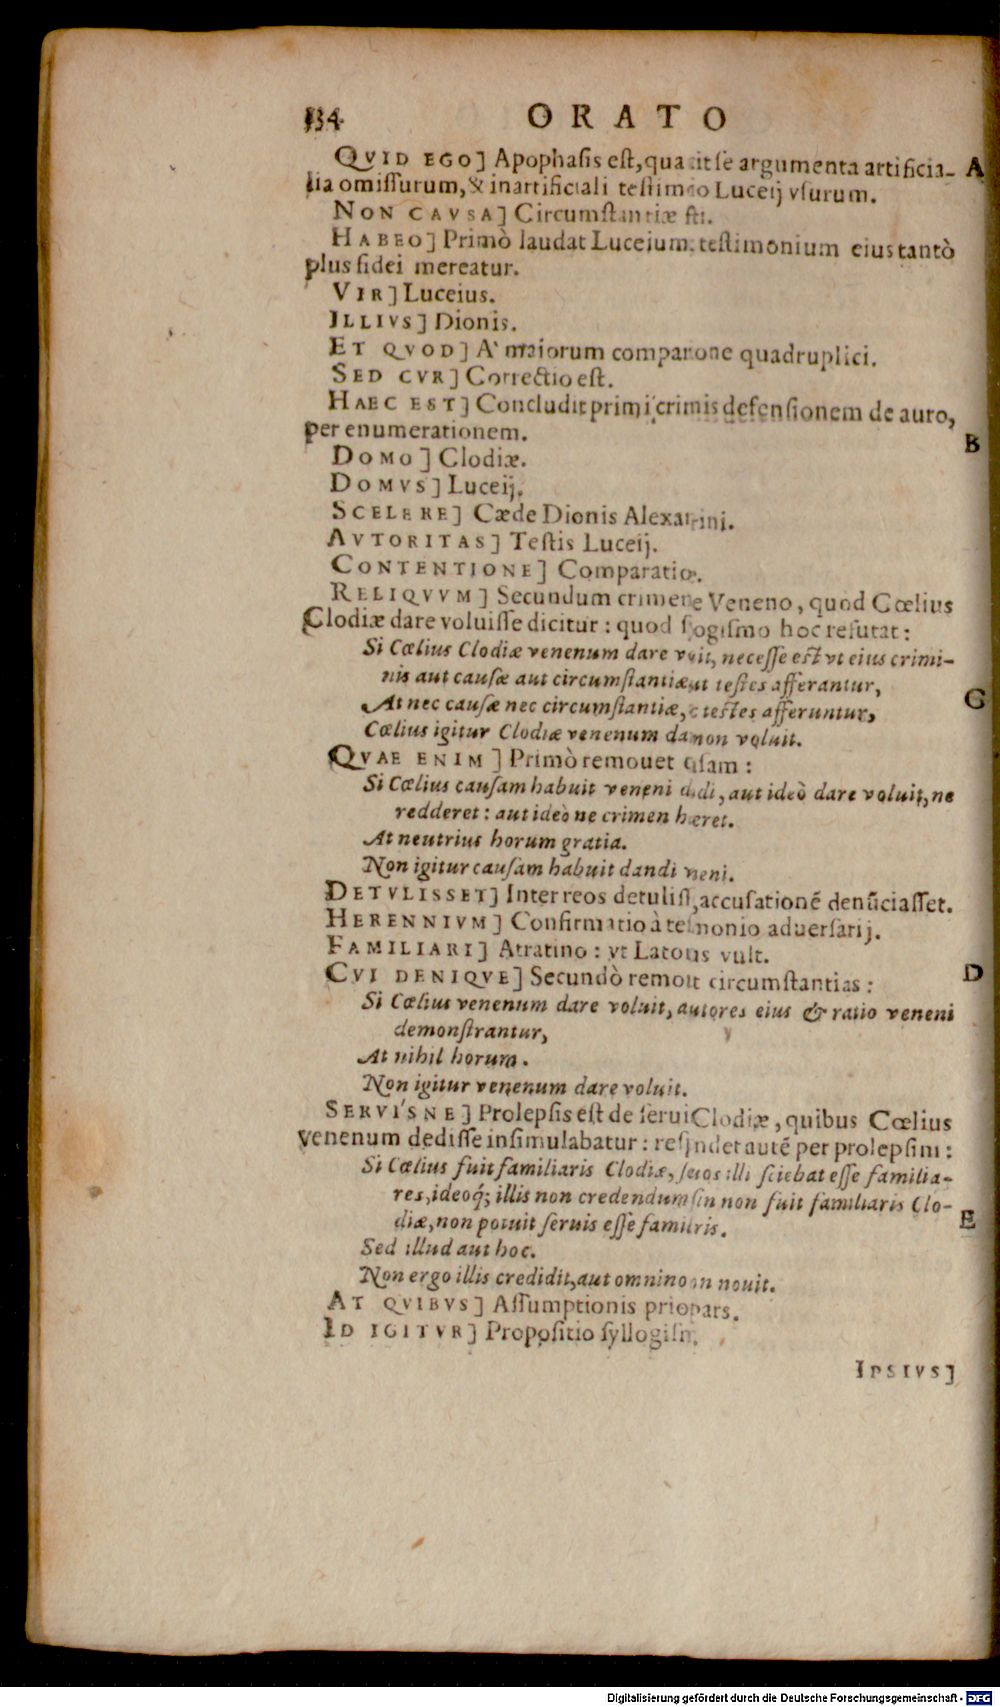 134 ORATO
QVID EGO] Apophasis est, qua ait se argumenta artificia- A
lia omissurum, & inartificiali testim io Luceij vsurum.
NON CAVSA] Circumstantiæ
HABEO] Primò laudat Luceium testimonium eius tantò
plus fidei mereatur.
VIR] Luceius.
ILLIVS] Dionis.
ET QVOD] A' maiorum compar one quadruplici.
SED CVR] Correctio est.
HAEC EST] Concludit primi crimis defensionem de auro,
per enumerationem. B
DOMO] Clodiæ.
DOMVS] Luceij.
SCELERE] Cæde Dionis Alexa rini.
AVTORITAS] Testis Luceij.
CONTENTIONE] Comparatio.
RELIQVVM] Secundum crimen e Veneno, quod Cœlius
Clodiæ dare voluisse dicitur: quod s ogismo hoc refutat:
Si Cœlius Clodiæ venenum dare v it, necesse est vt eius crimi-
nis aut causæ aut circumstantiæ ut testes afferantur,
At nec causæ nec circumstantiæ, c testes afferuntur, C
Cœlius igitur Clodiæ venenum da non voluit.
QVAE ENIM] Primò remouet sam:
Si Cœlius causam habuit veneni d di, aut ideò dare voluit, ne
redderet: aut ideò ne crimen h eret.
At neutrius horum gratia.
Non igitur causam habuit dandi neni.
DETVLISSET] Inter reos detuliss , accusationẽ denũciasset.
HERENNIVM] Confirmatio à tes nonio aduersarij.
FAMILIARI] Atratino: vt Latous vult.
CVI DENIQVE] Secundò remo t circumstantias: D
Si Cœlius venenum dare voluit, autores eius & ratio veneni
demonstrantur,
At nihil horum.
Non igitur venenum dare voluit.
SERVI'SNE] Prolepsis est de serui Clodiæ, quibus Cœlius
venenum dedisse insimulabatur: res ndet autẽ per prolepsim:
Si Cœlius fuit familiaris Clodiæ, s uos illi sciebat esse familia-
res, ideoq́; illis non credendum sin non fuit familiaris Clo-
diæ, non potuit seruis esse famil ris. E
Sed illud aut hoc.
Non ergo illis credidit, aut omnino n nouit.
AT QVIBVS] Assumptionis prio pars.
ID IGITVR] Propositio syllogis
IPSIVS]
Digitalisierung gefördert durch die Deutsche Forschungsgemeinschaft - DFG